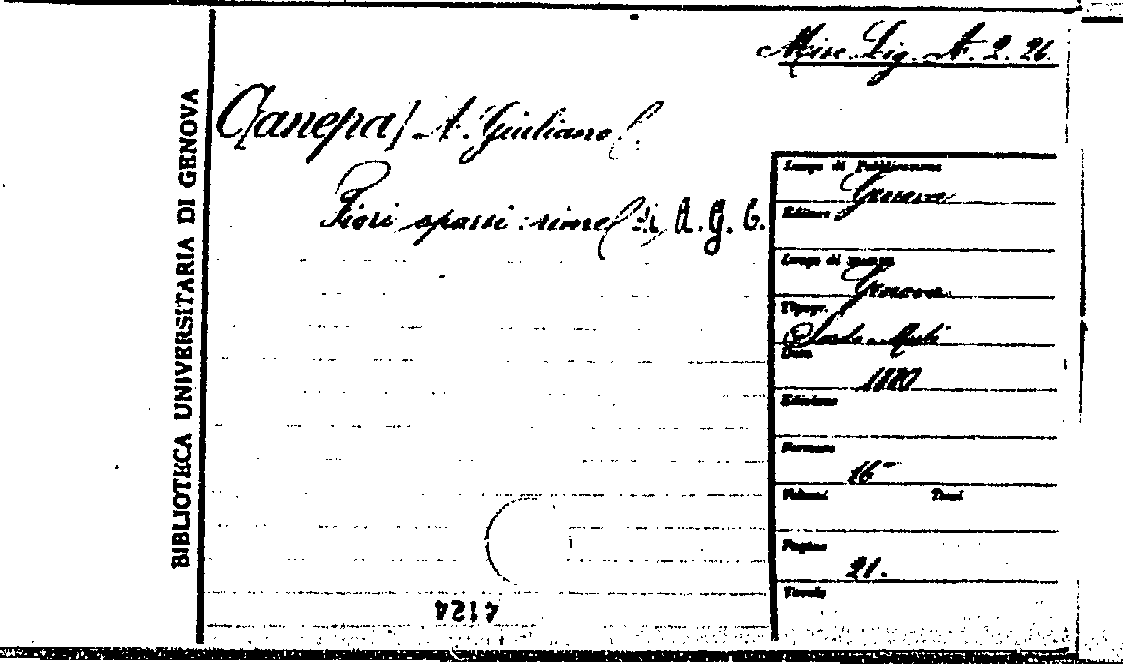 Misc. Lig. A. 2. 26.
BIBLIOTECA UNIVERSITARIA DI GENOVA
C[anepa] A. Giuliano
Fiori sparsi: rime di A. G. C.
Luogo di Pubblicazione
Genova
Editore
Luogo di stampa
Genova
Tipogr.
Sordo-Muti
Data
1880
Edizione
Formato
16°
Volumi Tomi
Pagine
21.
Tavole
4124